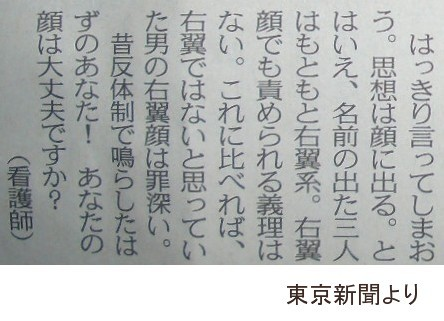 はっきり言ってしまお
う。思想は顔に出る。と
はいえ、名前の出た三人
はもともと右翼系。右翼
顔でも責められる義理は
ない。これに比べれば、
右翼ではないと思ってい
た男の右翼顔は罪深い。
昔反体制で鳴らしたは
ずのあなた！　あなたの
顔は大丈夫ですか？
（看護師）
東京新聞より